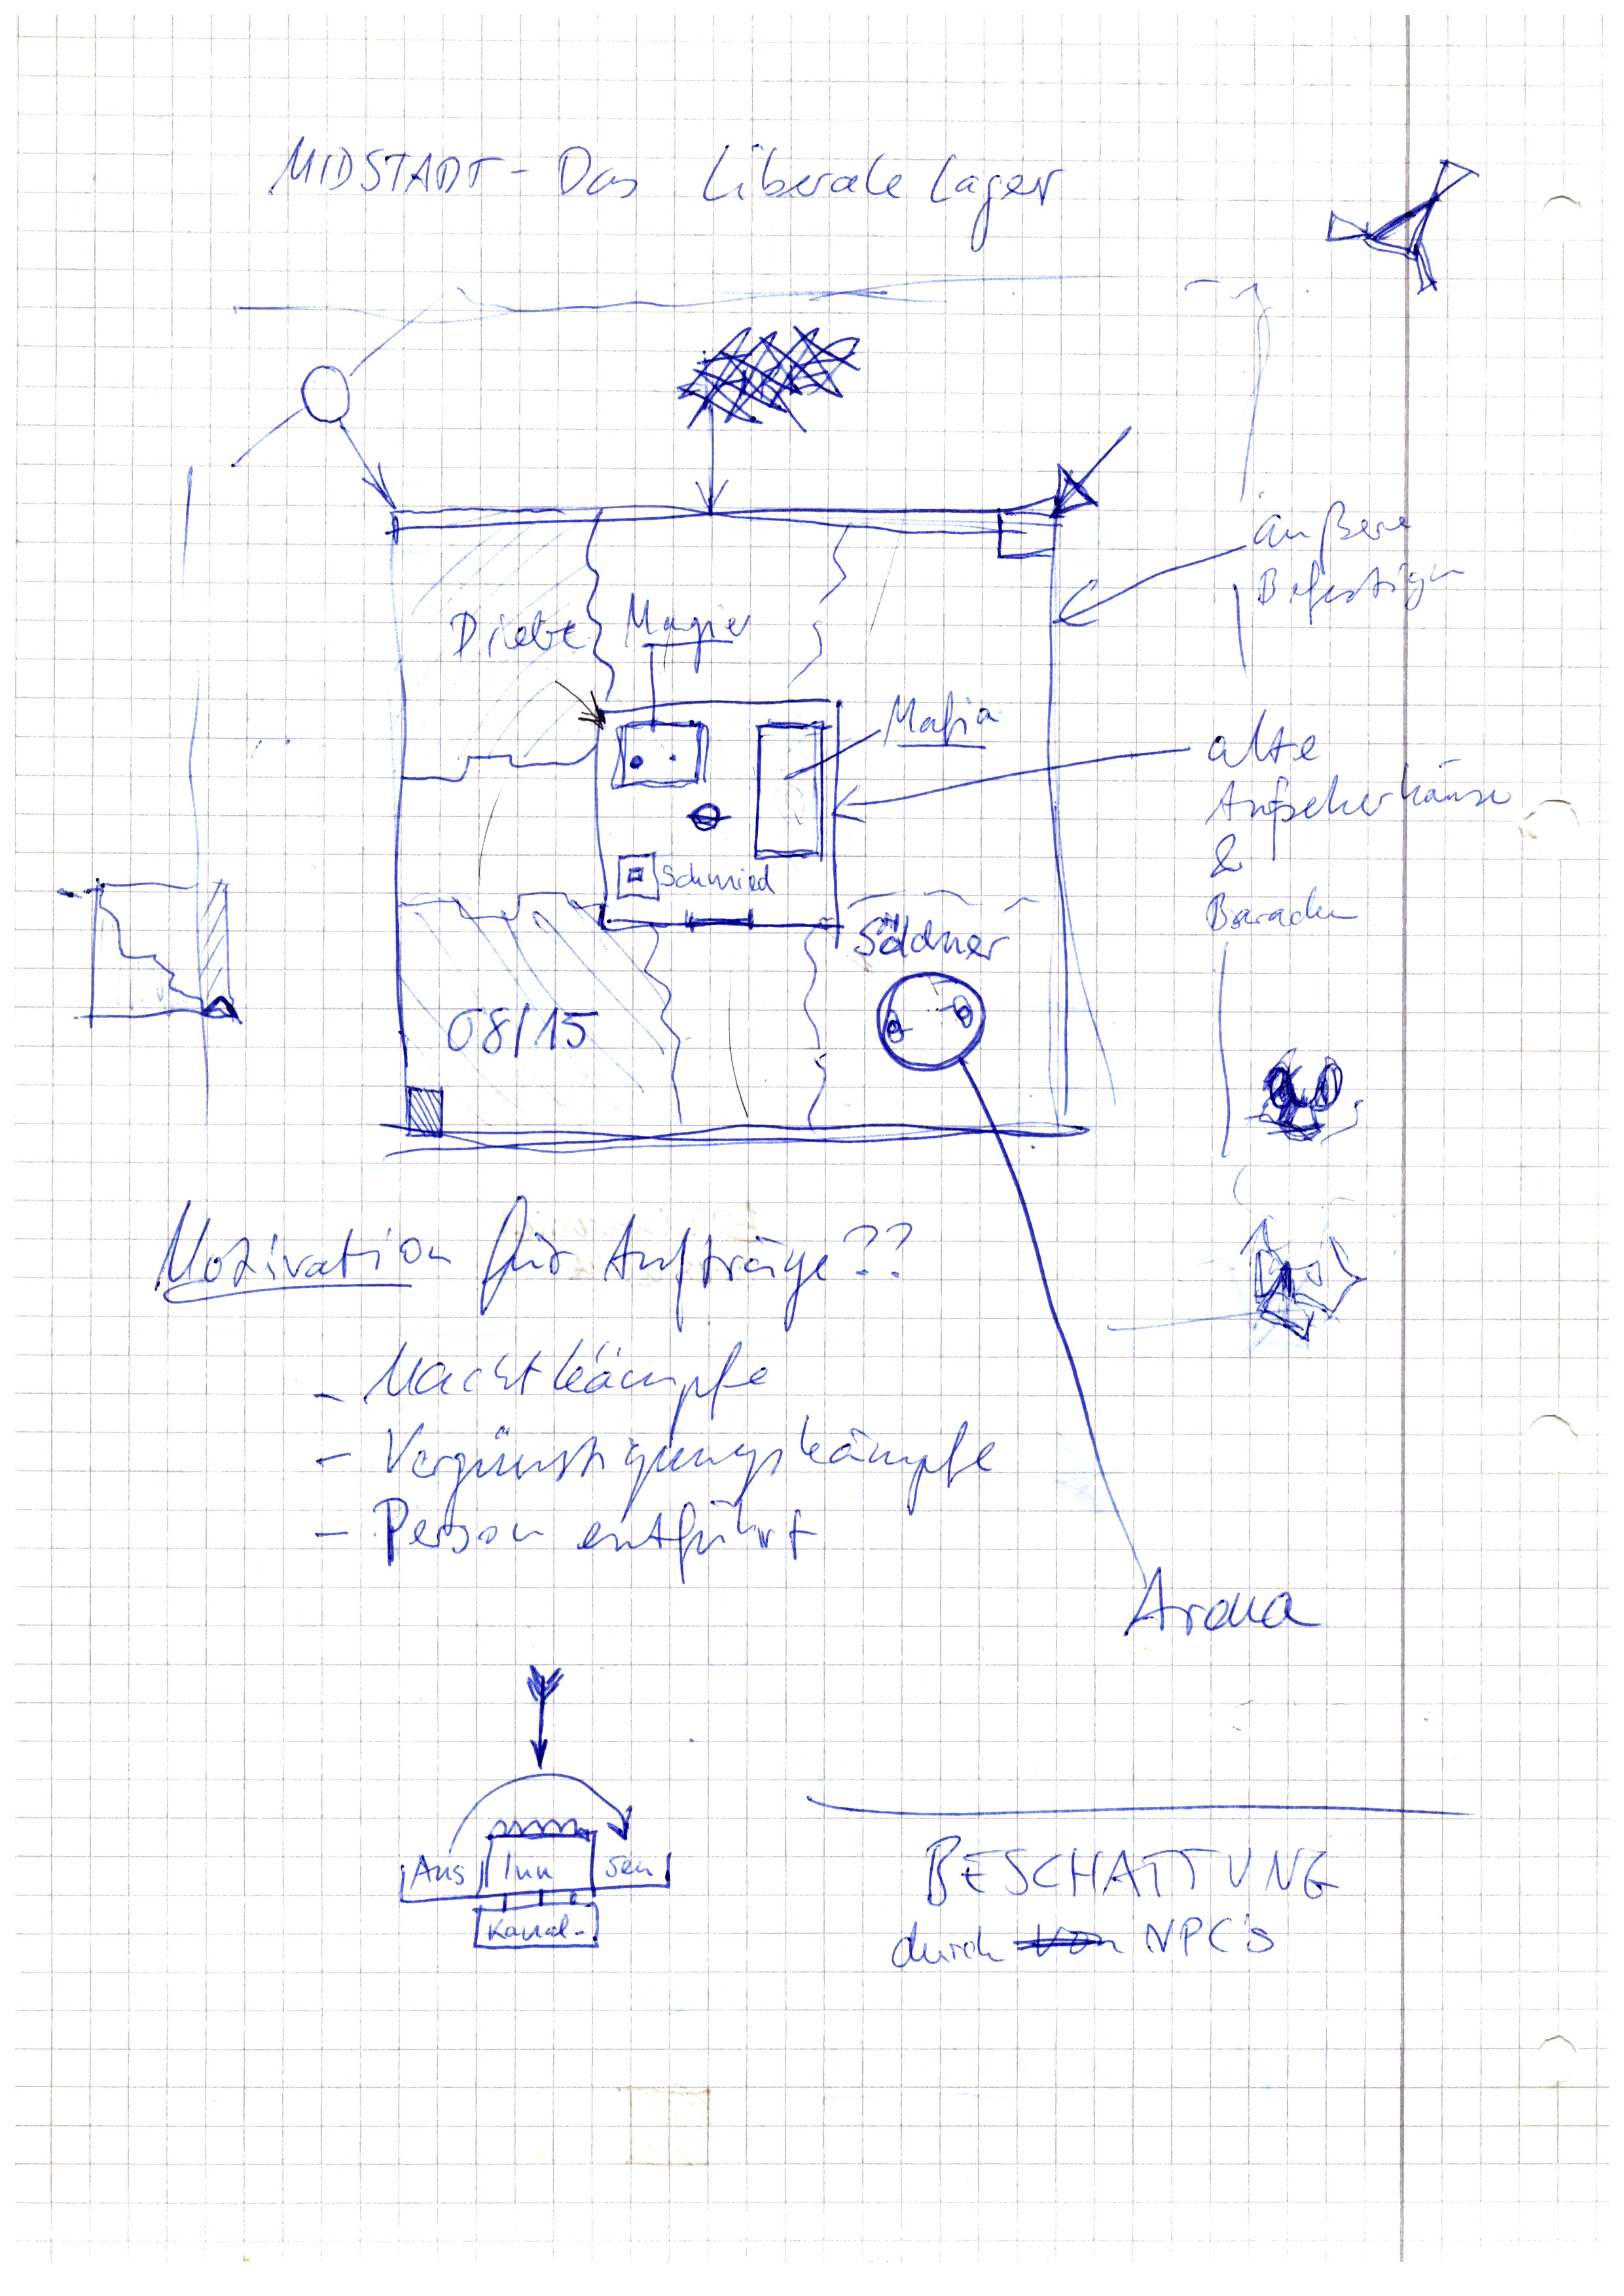 MIDSTADT - Das Liberale Lager
äußere
Befestigun
Diebe
Magier
Mafia
alte
Aufseherhäuser
&
Baracken
Schmied
Söldner
08/15
Motivation für Aufträge??
- Machtkämpfe
- Vergünstigungskämpfe
- Person entführt
Arena
Aus Inn sen
Kanal-
BESCHATTUNG
durch von NPC's